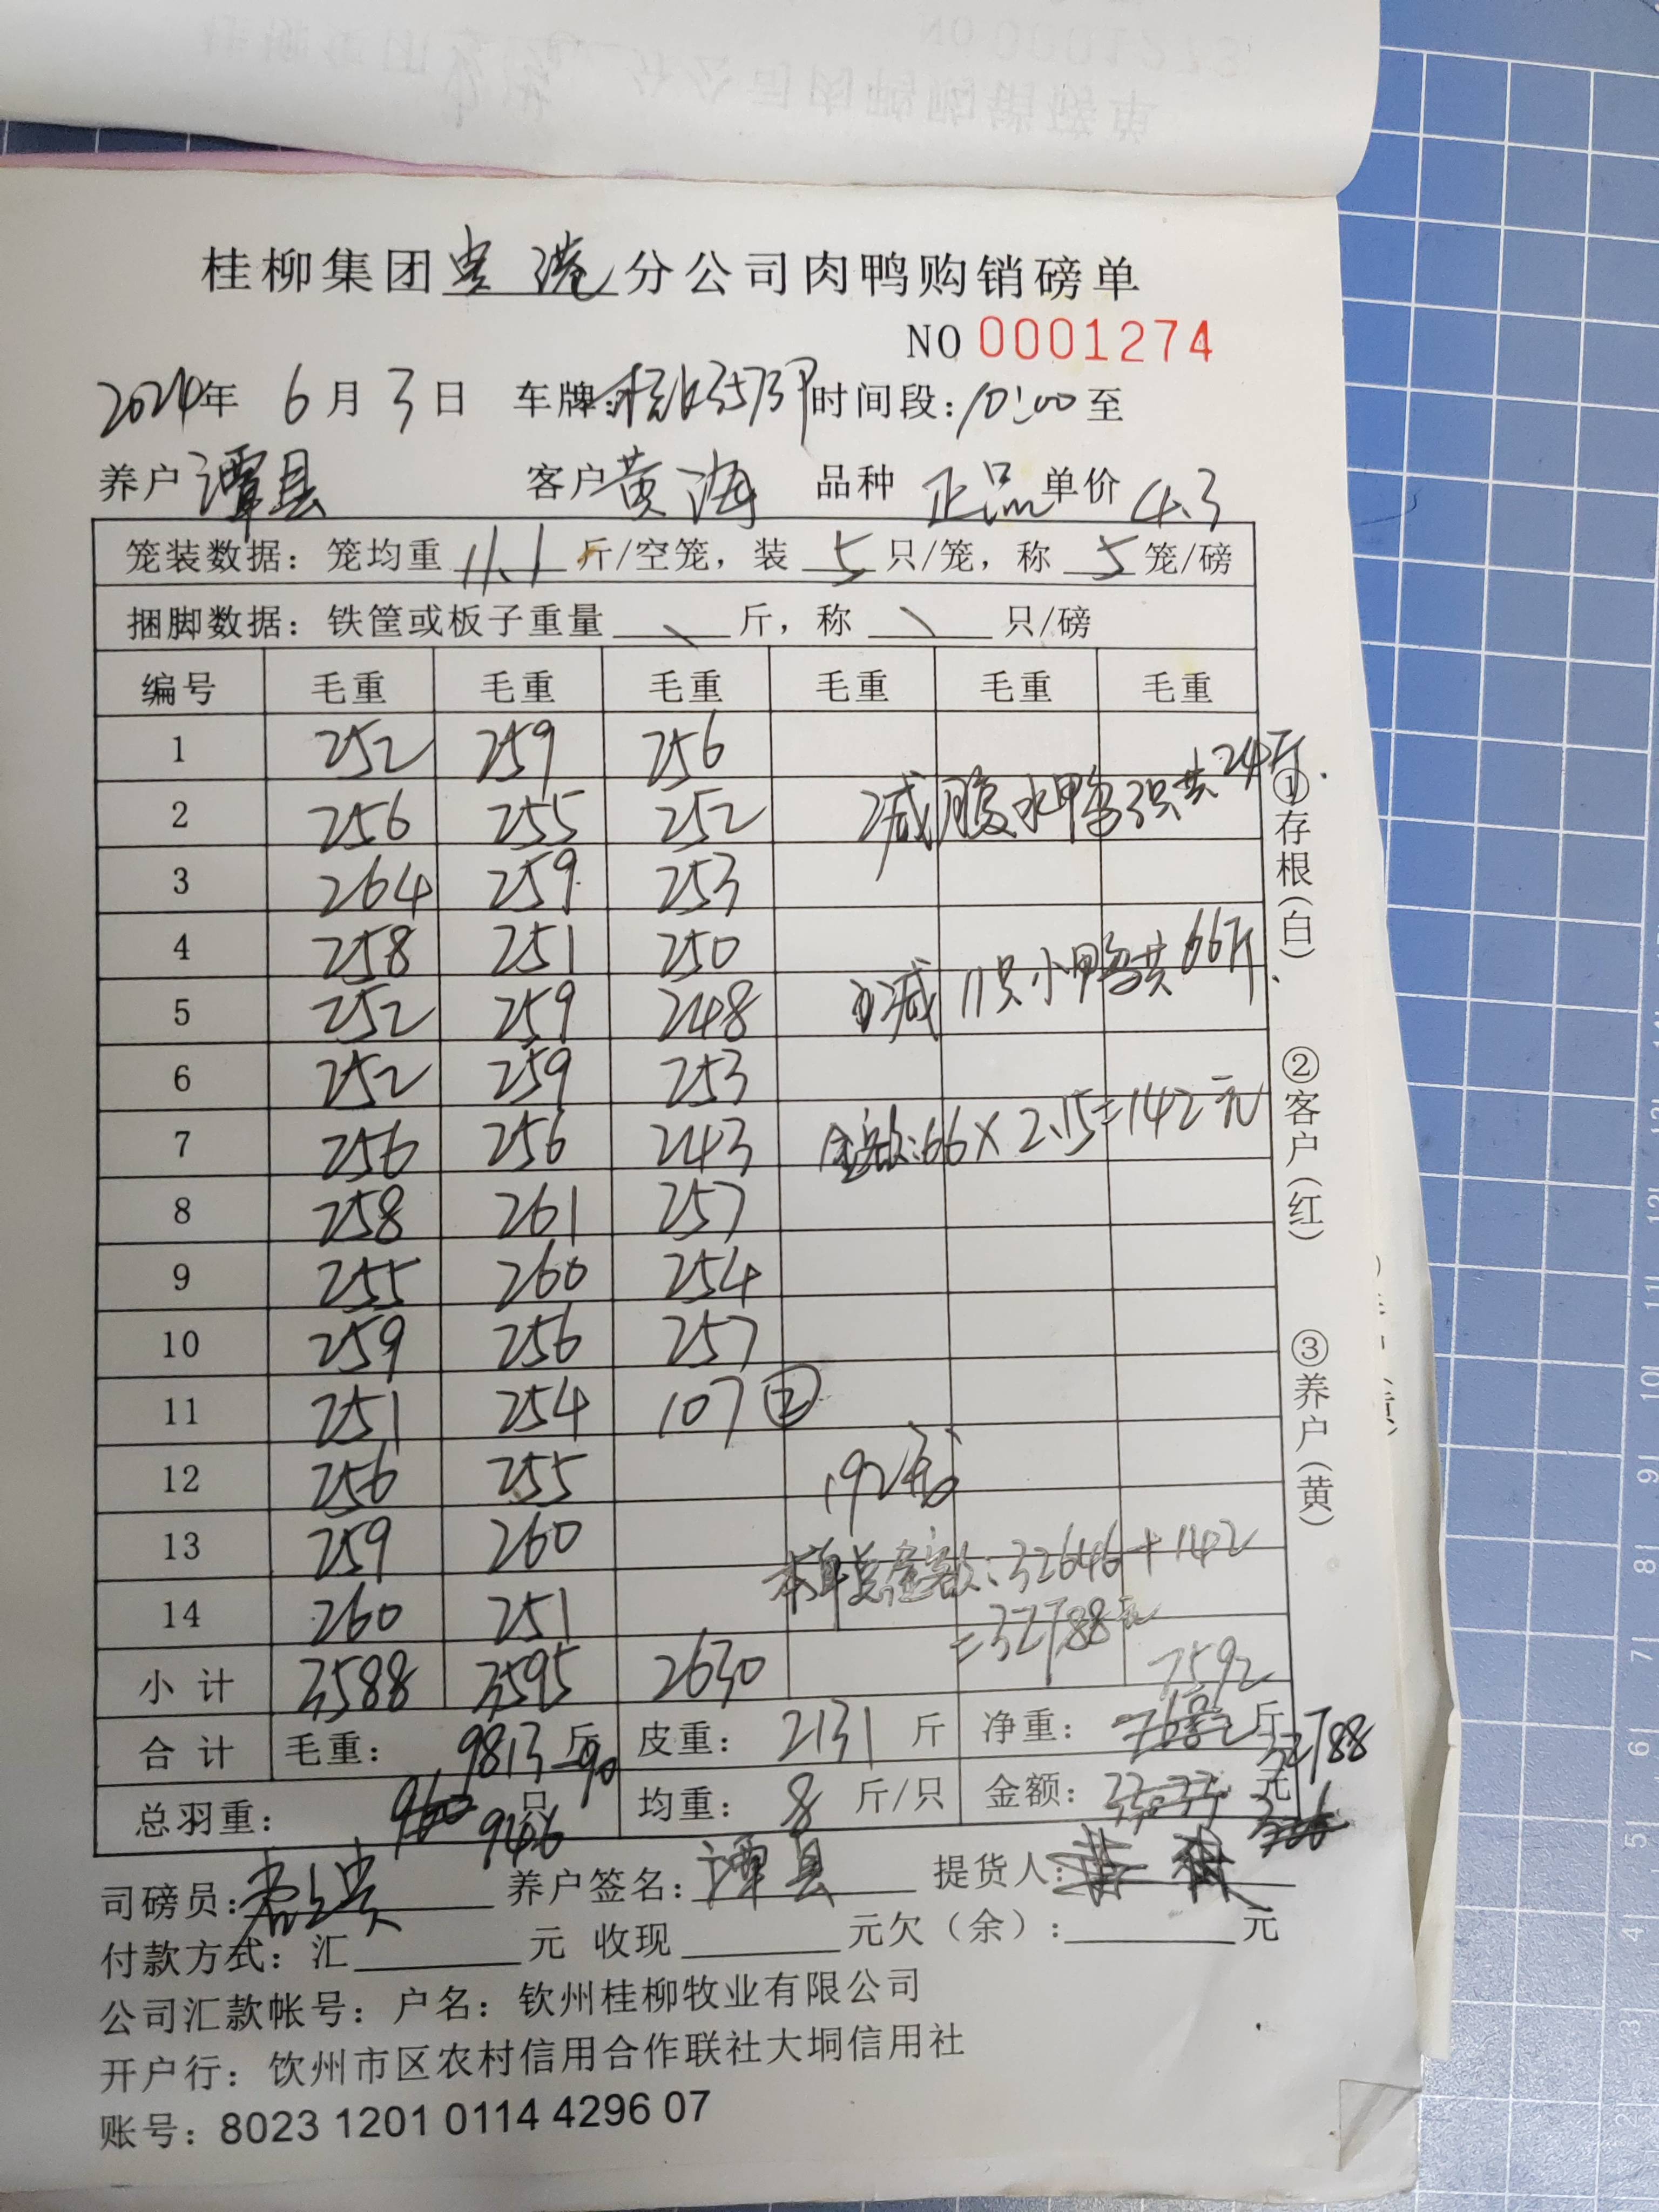 桂柳集团贵港分公司肉鸭购销磅单
NO 0001274
2024年 6月 3日 车牌: 时间段:10:00至
养户 谭县 客户 黄海 品种 正品 单价 4.3
笼装数据：笼均重 11.1 斤/空笼，装 5 只/笼，称 5 笼/磅
捆脚数据：铁筐或板子重量 \ 斤，称 \ 只/磅
编号 毛重 毛重 毛重 毛重 毛重 毛重
1 252 259 256
减腹水鸭3只共24斤.
2 256 255 252
3 264 259 253
4 258 251 250
减 11只小鸭共66斤.
5 252 259 248
6 252 259 253
7 256 256 243 金额:66×2.15=142元
8 258 261 257
9 255 260 254
10 259 256 257
11 251 254 107 ②
12 256 255 192
13 259 260 本单总金额:32646+142
14 260 251 =32788元
小计 3588 3595 2630 7592
合计 毛重： 9813 斤 -90 皮重： 2131 斤 净重： 斤
32788
总羽重： 960 只 946 均重： 8 斤/只 金额： 元
司磅员: 养户签名: 谭县 提货人:
付款方式：汇 元 收现 元欠（余）: 元
公司汇款帐号：户名：钦州桂柳牧业有限公司
开户行：饮州市区农村信用合作联社大垌信用社
账号：8023 1201 0114 4296 07
①存根(白)
②客户(红)
③养户(黄)